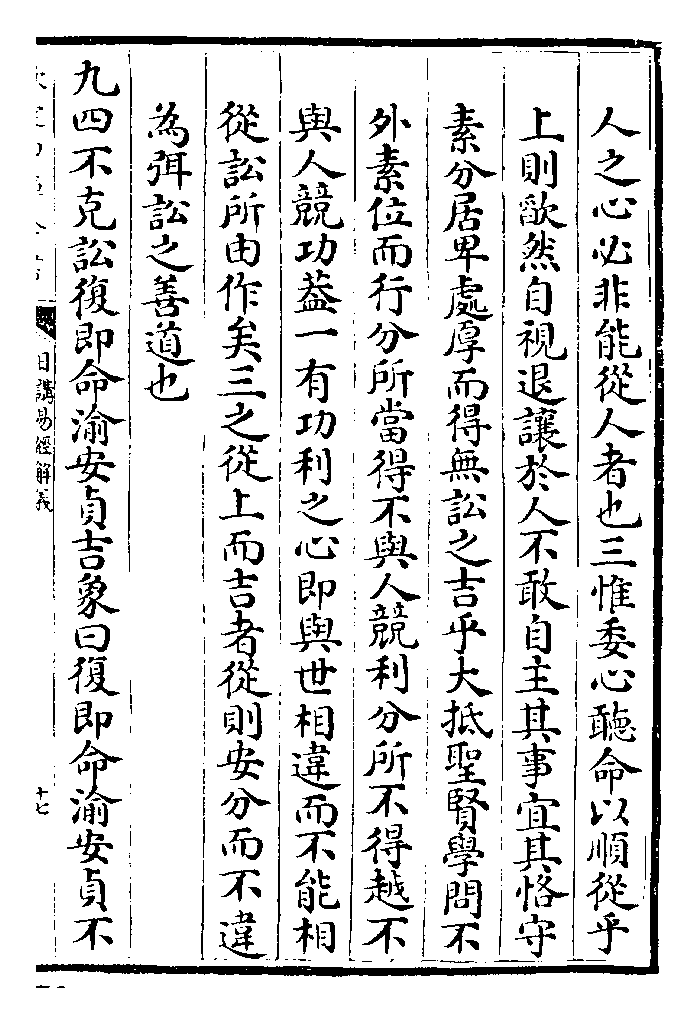 人之心必非能從人者也三惟委心聽命以順從乎
上則歉然自視退讓於人不敢自主其事宜其恪守
素分居卑處厚而得無訟之吉乎大抵聖賢學問不
外素位而行分所當得不與人競利分所不得越不
與人競功葢一有功利之心即與世相違而不能相
從訟所由作矣三之從上而吉者從則安分而不違
為弭訟之善道也
九四不克訟復即命渝安貞吉象曰復即命渝安貞不
日講易經解義
十七